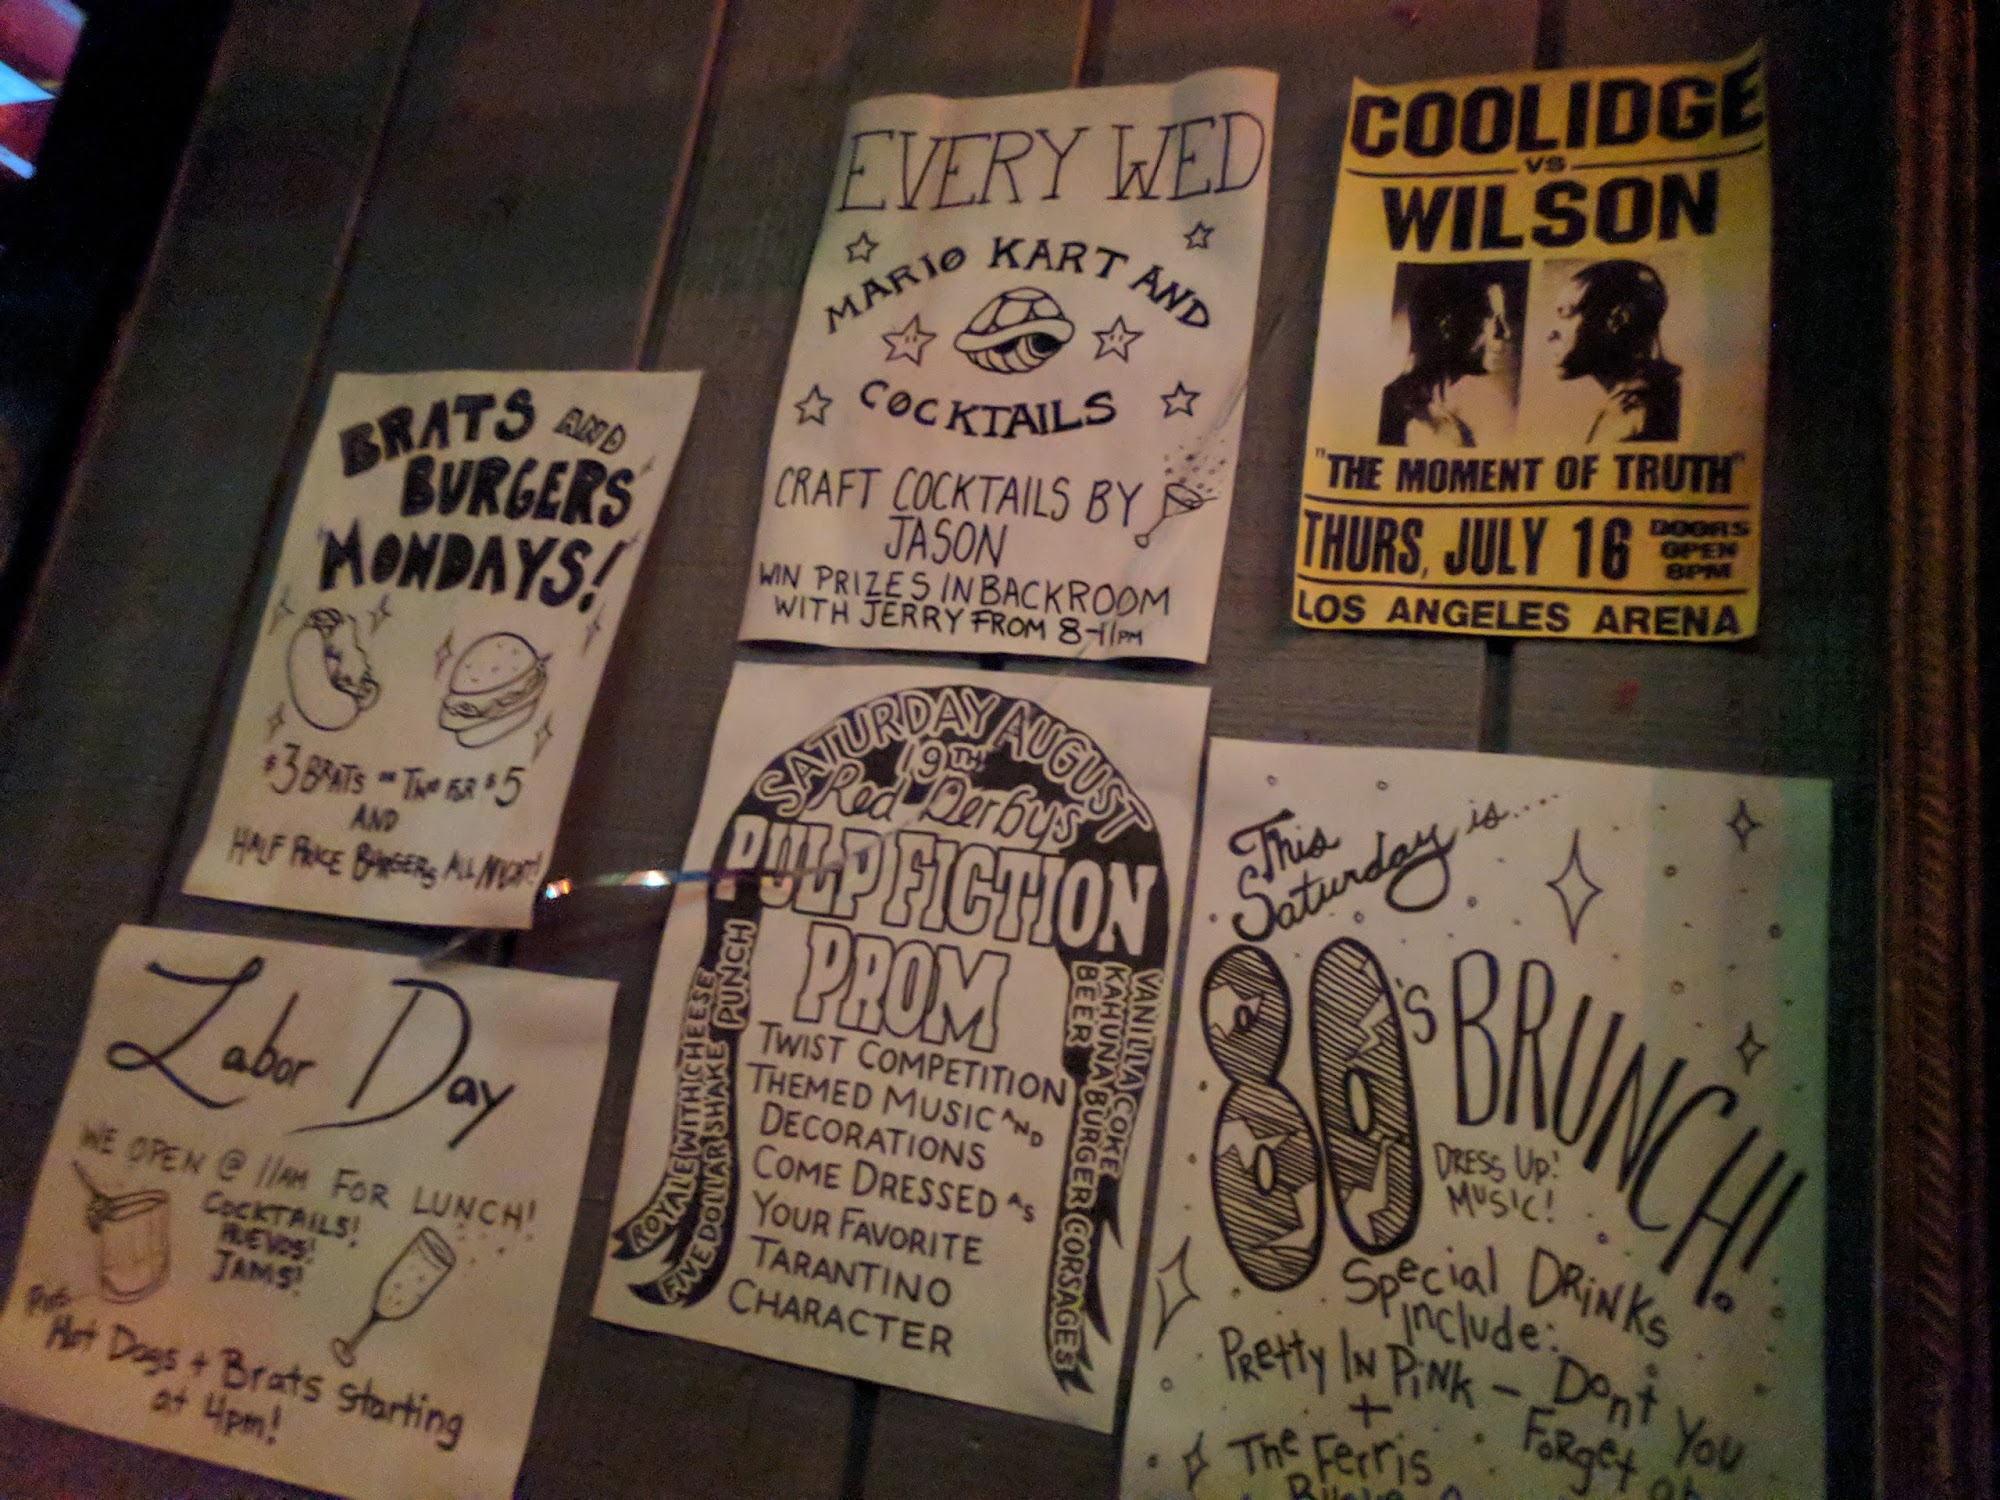 EVERY WED
MARIO KART AND
COCKTAILS
CRAFT COCKTAILS BY
JASON
WIN PRIZES IN BACKROOM
WITH JERRY FROM 8-11PM
COOLIDGE
VS
WILSON
"THE MOMENT OF TRUTH"
THURS, JULY 16
DOORS
OPEN
8PM
LOS ANGELES ARENA
BRATS AND
BURGERS
MONDAYS!
$3 BRATS OR TWO FOR $5
AND
HALF PRICE BURGERS ALL NIGHT!
SATURDAY AUGUST
19TH
Red Derby's
PULP FICTION
PROM
TWIST COMPETITION
THEMED MUSIC AND
DECORATIONS
COME DRESSED AS
YOUR FAVORITE
TARANTINO
CHARACTER
ROYALE WITH CHEESE
PUNCH
FIVE DOLLAR SHAKE
BEER
KAHUNA BURGER CORSAGES
VANILLA COKE
This
Saturday is....
80's BRUNCH!
DRESS UP!
MUSIC!
Special DRINKS
Include:
PRETTY IN PINK - Don't You
+ Forget
The Ferris
Labor Day
WE OPEN @ 11AM FOR LUNCH!
COCKTAILS!
HUEVOS!
JAMS!
Hot Dogs + Brats starting
at 4pm!